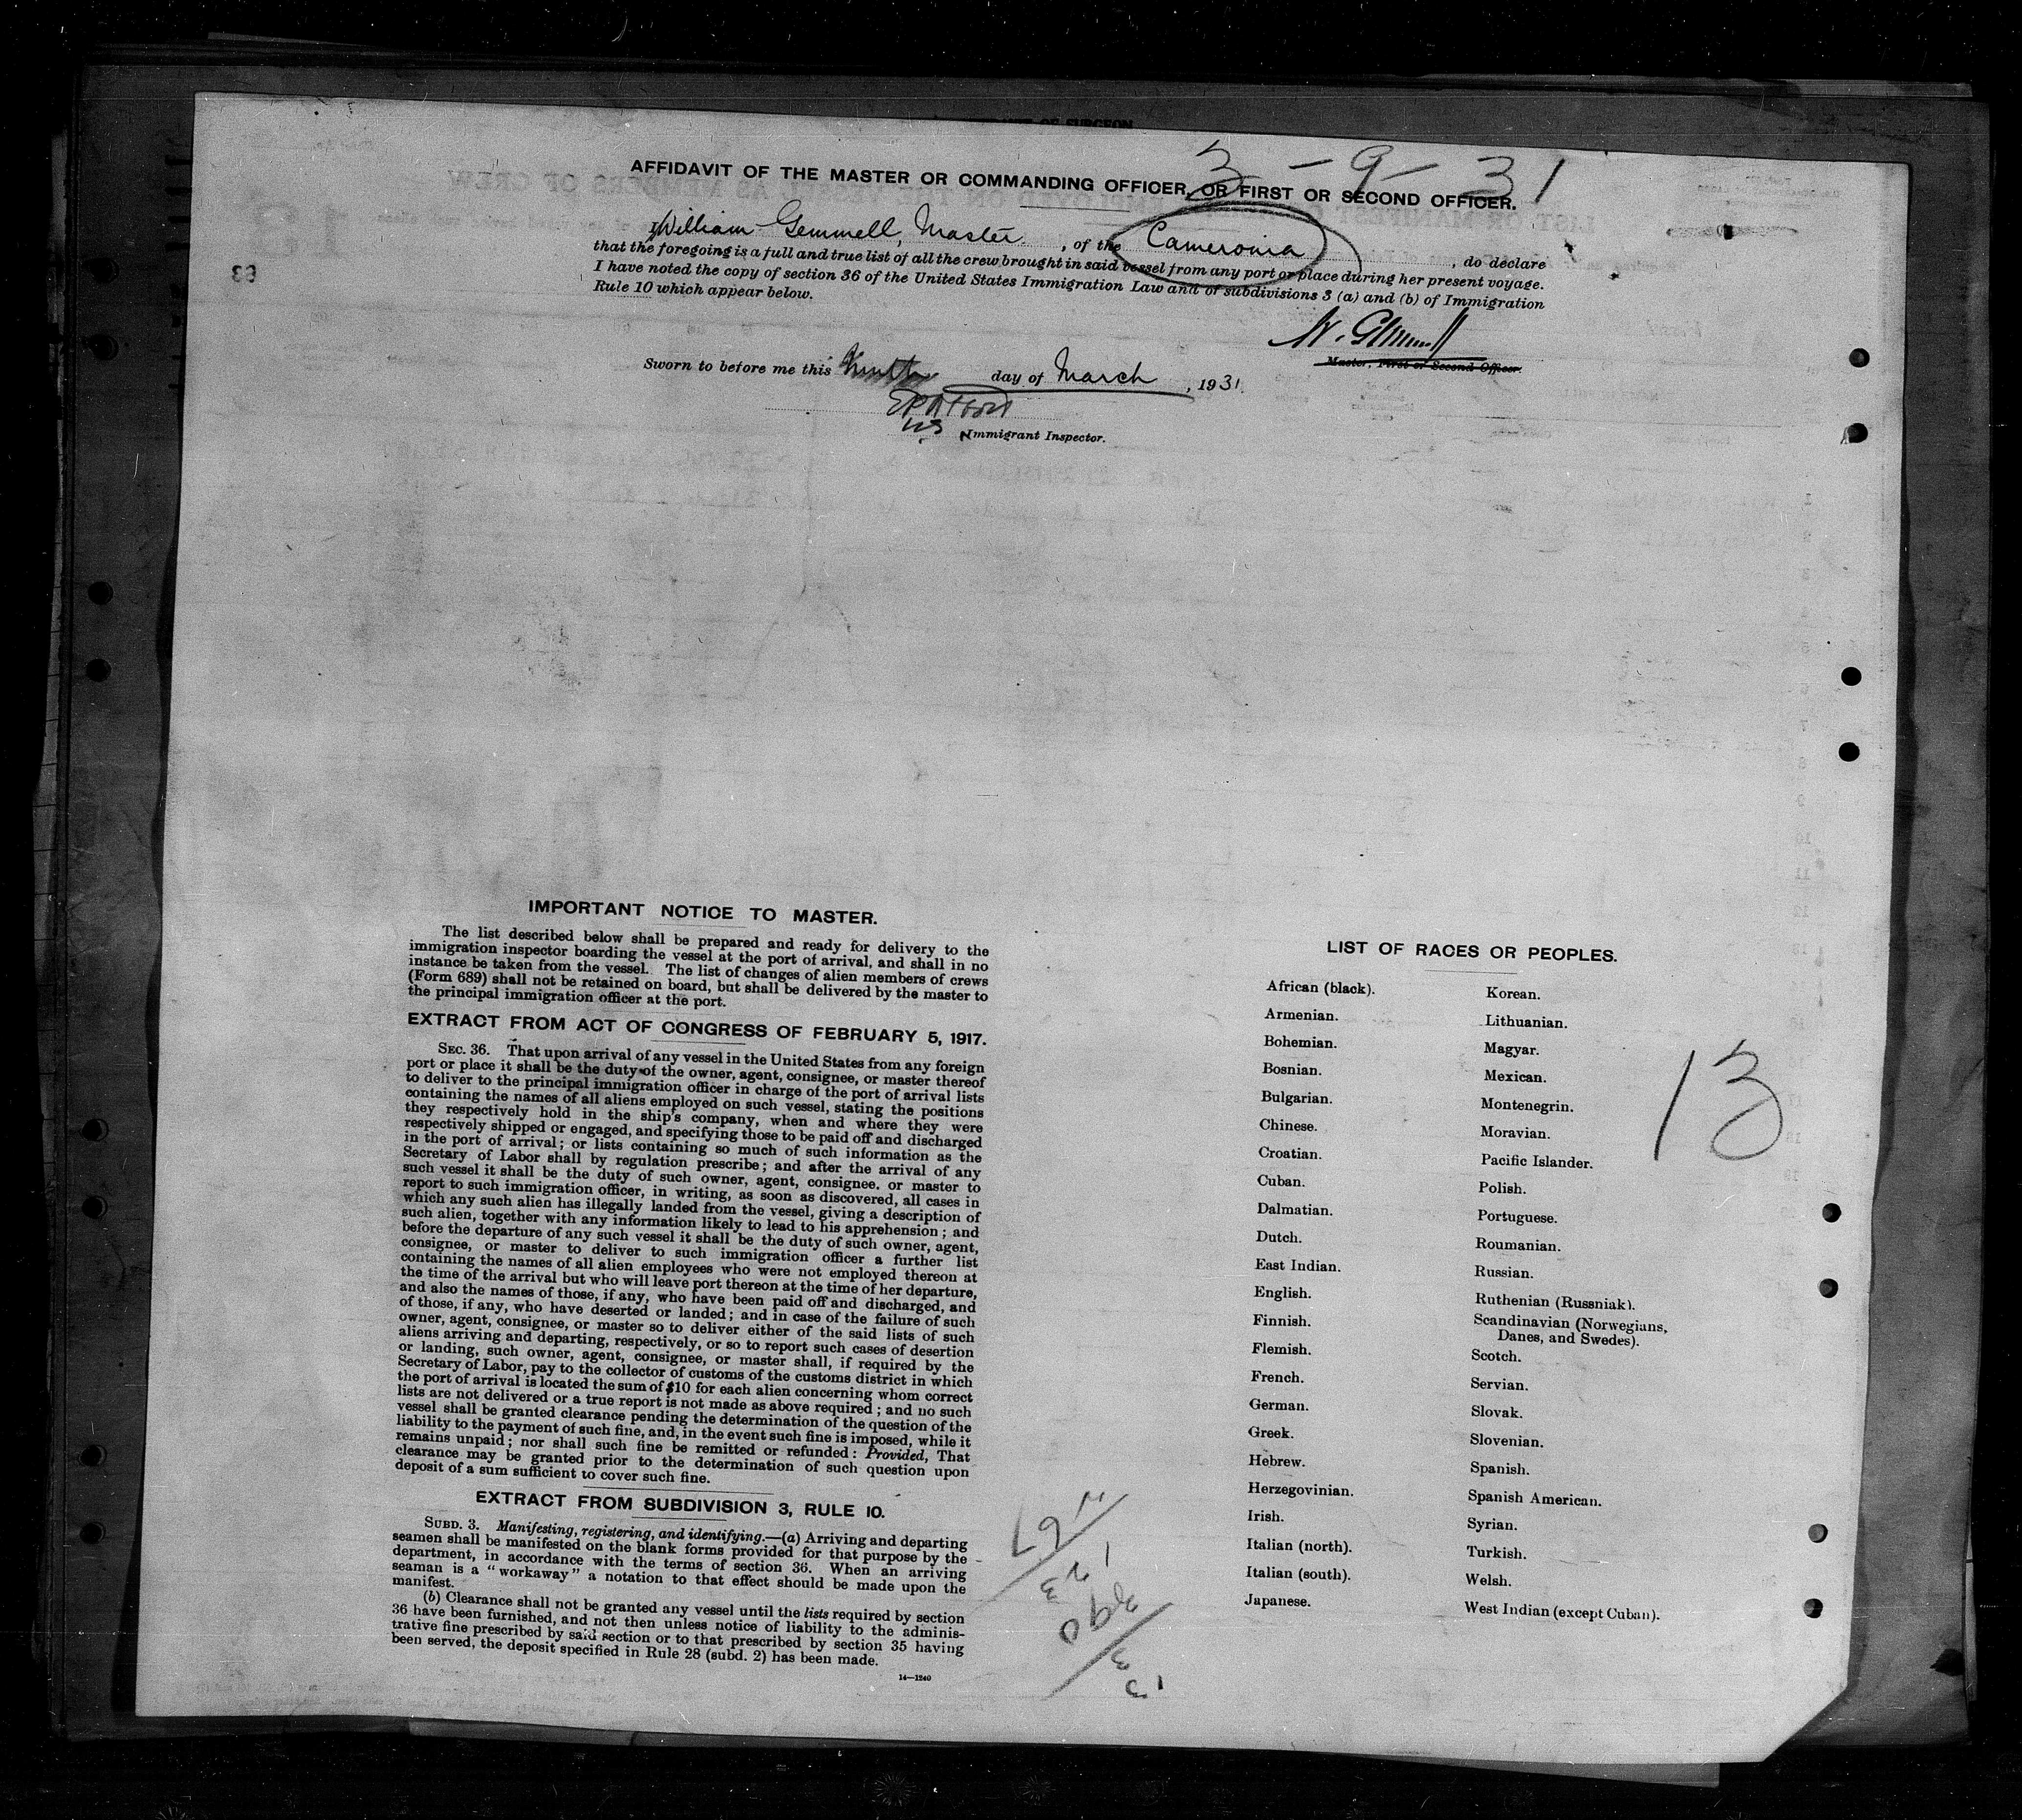 3-9-31
AFFIDAVIT OF THE MASTER OR COMMANDING OFFICER, OR FIRST OR SECOND OFFICER.
I, William Gemmell, Master, of the Cameronia, do declare
that the foregoing is a full and true list of all the crew brought in said vessel from any port or place during her present voyage.
I have noted the copy of section 36 of the United States Immigration Law and of subdivisions 3 (a) and (b) of Immigration
Rule 10 which appear below.
W. Gemmell
Master, First or Second Officer.
Sworn to before me this Ninth day of March, 1931.
Immigrant Inspector.
IMPORTANT NOTICE TO MASTER.
The list described below shall be prepared and ready for delivery to the
immigration inspector boarding the vessel at the port of arrival, and shall in no
instance be taken from the vessel. The list of changes of alien members of crews
(Form 689) shall not be retained on board, but shall be delivered by the master to
the principal immigration officer at the port.
EXTRACT FROM ACT OF CONGRESS OF FEBRUARY 5, 1917.
SEC. 36. That upon arrival of any vessel in the United States from any foreign
port or place it shall be the duty of the owner, agent, consignee, or master thereof
to deliver to the principal immigration officer in charge of the port of arrival lists
containing the names of all aliens employed on such vessel, stating the positions
they respectively hold in the ship's company, when and where they were
respectively shipped or engaged, and specifying those to be paid off and discharged
in the port of arrival; or lists containing so much of such information as the
Secretary of Labor shall by regulation prescribe; and after the arrival of any
such vessel it shall be the duty of such owner, agent, consignee. or master to
report to such immigration officer, in writing, as soon as discovered, all cases in
which any such alien has illegally landed from the vessel, giving a description of
such alien, together with any information likely to lead to his apprehension; and
before the departure of any such vessel it shall be the duty of such owner, agent,
consignee, or master to deliver to such immigration officer a further list
containing the names of all alien employees who were not employed thereon at
the time of the arrival but who will leave port thereon at the time of her departure,
and also the names of those, if any, who have been paid off and discharged, and
of those, if any, who have deserted or landed; and in case of the failure of such
owner, agent, consignee, or master so to deliver either of the said lists of such
aliens arriving and departing, respectively, or so to report such cases of desertion
or landing, such owner, agent, consignee, or master shall, if required by the
Secretary of Labor, pay to the collector of customs of the customs district in which
the port of arrival is located the sum of $10 for each alien concerning whom correct
lists are not delivered or a true report is not made as above required; and no such
vessel shall be granted clearance pending the determination of the question of the
liability to the payment of such fine, and, in the event such fine is imposed, while it
remains unpaid; nor shall such fine be remitted or refunded: Provided, That
clearance may be granted prior to the determination of such question upon
deposit of a sum sufficient to cover such fine.
EXTRACT FROM SUBDIVISION 3, RULE 10.
SUBD. 3. Manifesting, registering, and identifying.—(a) Arriving and departing
seamen shall be manifested on the blank forms provided for that purpose by the
department, in accordance with the terms of section 36. When an arriving
seaman is a "workaway" a notation to that effect should be made upon the
manifest.
(b) Clearance shall not be granted any vessel until the lists required by section
36 have been furnished, and not then unless notice of liability to the adminis-
trative fine prescribed by said section or to that prescribed by section 35 having
been served, the deposit specified in Rule 28 (subd. 2) has been made.
14—1240
LIST OF RACES OR PEOPLES.
African (black).
Armenian.
Bohemian.
Bosnian.
Bulgarian.
Chinese.
Croatian.
Cuban.
Dalmatian.
Dutch.
East Indian.
English.
Finnish.
Flemish.
French.
German.
Greek.
Hebrew.
Herzegovinian.
Irish.
Italian (north).
Italian (south).
Japanese.
Korean.
Lithuanian.
Magyar.
Mexican.
Montenegrin.
Moravian.
Pacific Islander.
Polish.
Portuguese.
Roumanian.
Russian.
Ruthenian (Russniak).
Scandinavian (Norwegians,
Danes, and Swedes).
Scotch.
Servian.
Slovak.
Slovenian.
Spanish.
Spanish American.
Syrian.
Turkish.
Welsh.
West Indian (except Cuban).
13